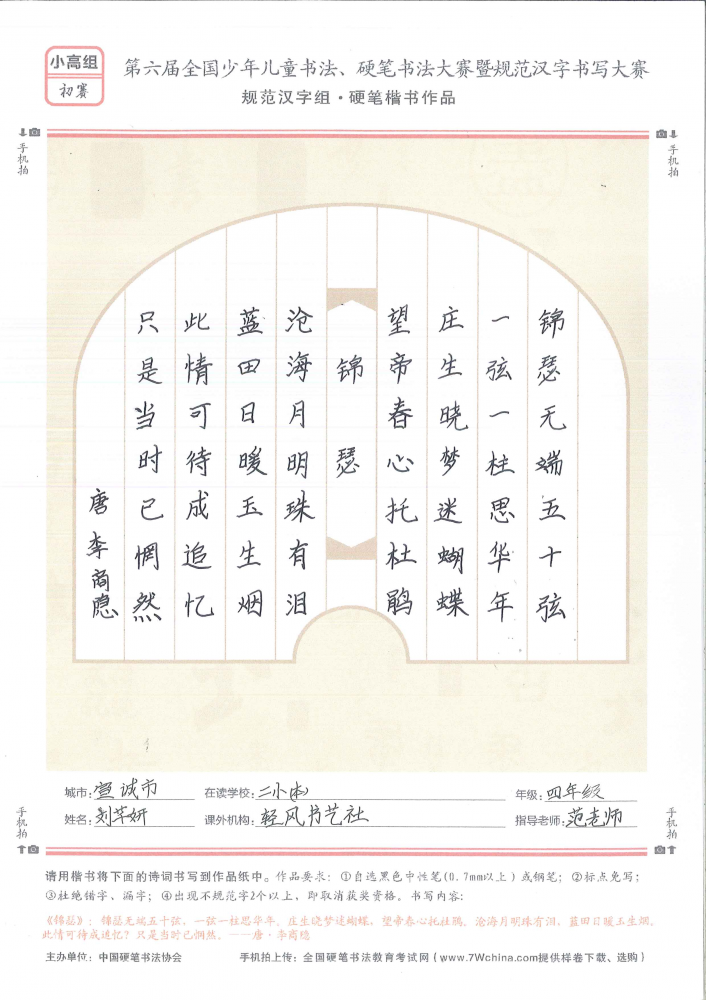 小高组
初赛
第六届全国少年儿童书法、硬笔书法大赛暨规范汉字书写大赛
规范汉字组·硬笔楷书作品
手机拍
手机拍
锦瑟无端五十弦
一弦一柱思华年
庄生晓梦迷蝴蝶
望帝春心托杜鹃
锦瑟
沧海月明珠有泪
蓝田日暖玉生烟
此情可待成追忆
只是当时已惘然
唐 李商隐
城市:宣诚市 在读学校:二小(本) 年级:四年级
姓名:刘芊妍 课外机构:轻风书艺社 指导老师:范老师
手机拍
手机拍
请用楷书将下面的诗词书写到作品纸中。作品要求:①自选黑色中性笔(0.7mm以上)或钢笔;②标点免写;
③杜绝错字、漏字;④出现不规范字2个以上,即取消获奖资格。书写内容:
《锦瑟》:锦瑟无端五十弦,一弦一柱思华年。庄生晓梦迷蝴蝶,望帝春心托杜鹃。沧海月明珠有泪,蓝田日暖玉生烟。
此情可待成追忆?只是当时已惘然。——唐·李商隐
主办单位:中国硬笔书法协会 手机拍上传:全国硬笔书法教育考试网(www.7Wchina.com提供样卷下载、选购)